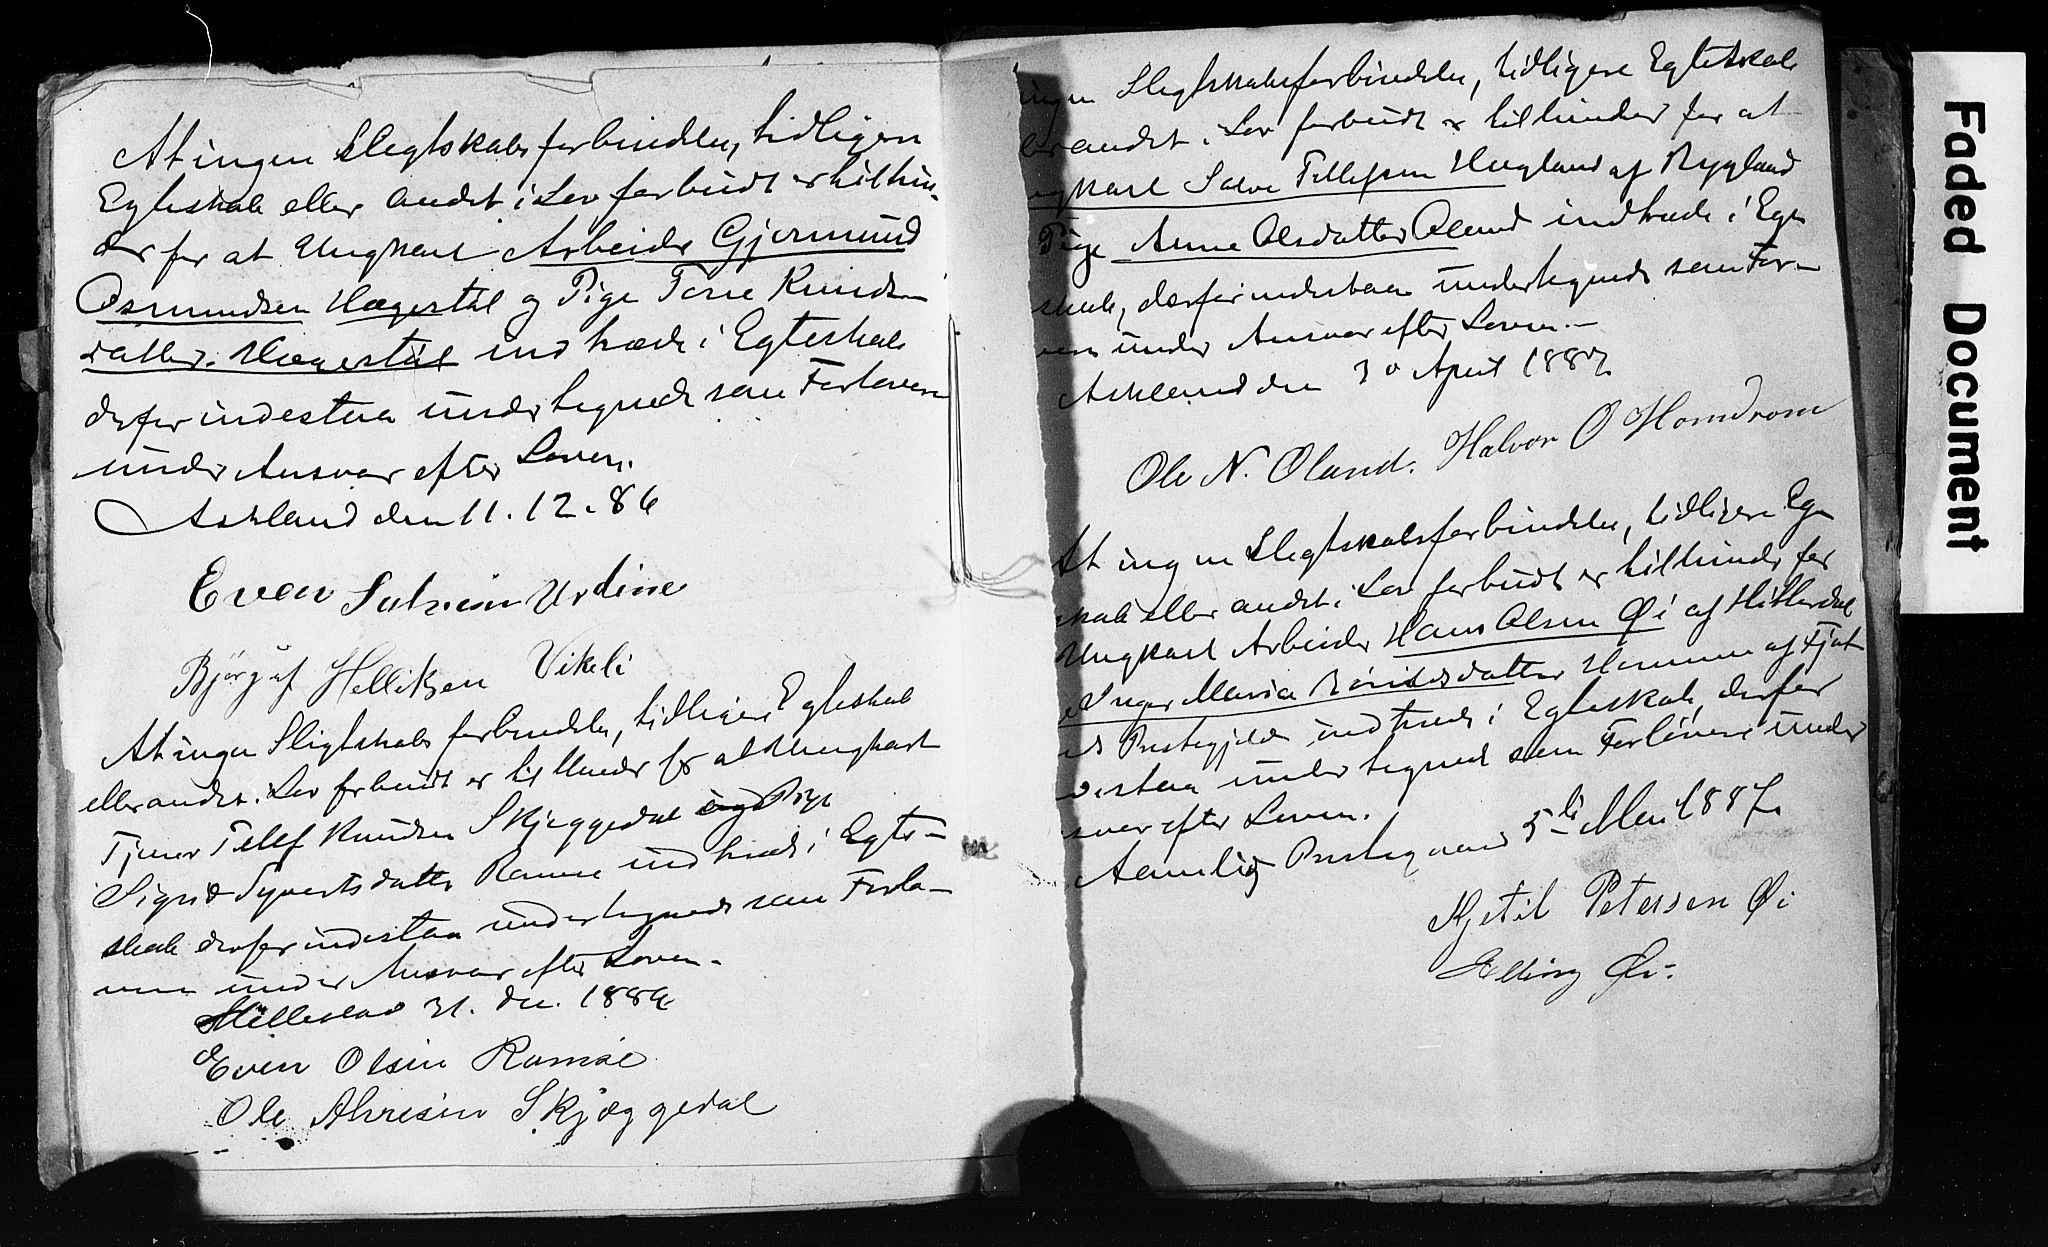 At ingen Slegtskabsforbindelse, tidligere
Egteskab eller andet i Lov forbudt er tilhin-
der for at Ungkarl Arbeider Gjermund
Osmundsen Hægestøl og Pige Tone Knuds-
datter Hægestøl indtræde i Egteskab
derfor indestaa undertegnede som Forlovere
under Ansvar efter Loven.
Askland den 11. 12. 86
Even Urdine
Bjørguf Helliksen Vikeli
At ingen Sligtskabs forbindelse, tidligere Egteskab
eller andet i Lov forbudt er til Hinder for at Ungkarl
Tjener Tellef Knudsen Skjeggedal og Pige
Sigrid Syvertsdatter Ramse indtræde i Egte-
skab derfor indestaa undertegnede som Forlo-
vere under Ansvar efter Loven.
31. Dec. 1886
Even Olsen Ramse
Ole Skjæggedal
ingen Slegtskabsforbindelse, tidligere Egteskab
andet i Lov forbudt er tilhinder for at
gkarl Salve Tellefsen Hugland af Mygland
Pige Anne Olsdatter Oland indtræde i Egte
skab, derfor indestaa undertegnede som For-
vere under Ansvar efter Loven.-
Askland den 30 April 1887
Ole N. Oland. Halvor O Homdrom
At ingen Slegtskabsforbindelse, tidligere Eg-
skab eller andet i Lov forbudt er tilhinder for
Ungkarl Arbeider Hans Olsen Øi af Hitterdal
Inger Maria Hommen af Fjot
ds Prestegjeld indtræde i Egteskab, derfor
destaa undertegnede som Forlovere under
svar efter Loven.
Aamlid Prestegaard 5te Mai 1887.
Kjetil Petersen Øi
Elling Øi.
Faded Document